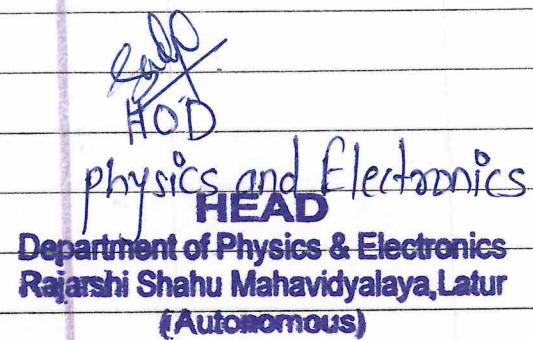 HOD
physics and Electronics
HEAD
Department of Physics & Electronics
Rajarshi Shahu Mahavidyalaya,Latur
(Autonomous)